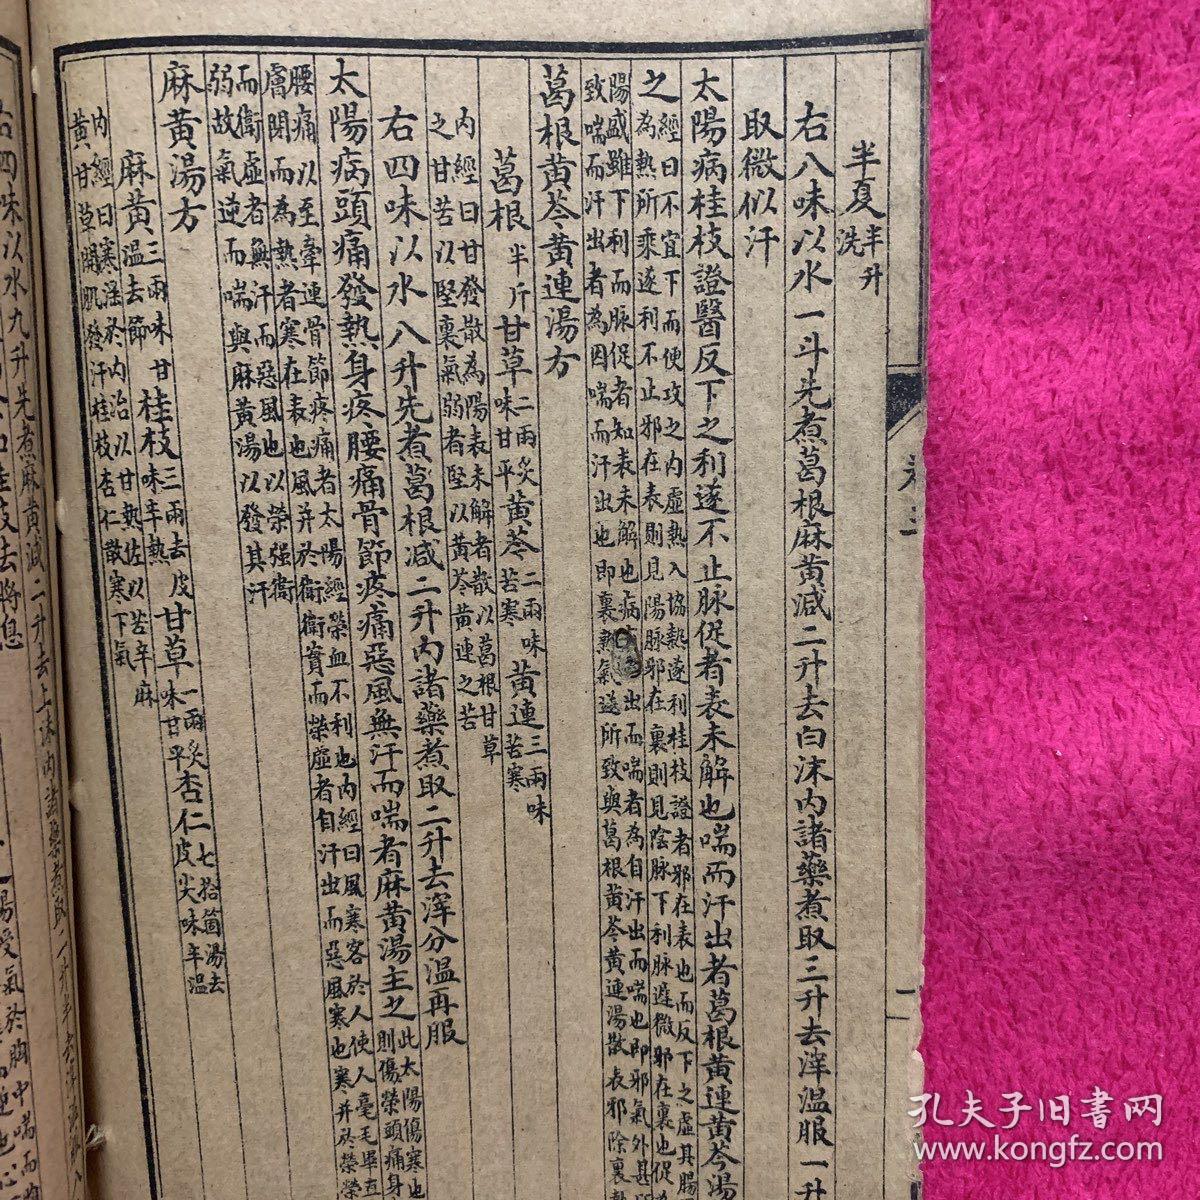 半夏半升
洗
右八味以水一斗先煮葛根麻黃減二升去白沫內諸藥煮取三升去滓溫服一升
取微似汗
太陽病桂枝證醫反下之利遂不止脉促者表未解也喘而汗出者葛根黃連黃芩湯
之經曰不宜下而便攻之內虛熱入協熱遂利桂枝證者邪在表也而反下之虛其腸
為熱所乘遂利不止邪在表則見陽脉邪在裏則見陰脉下利脉遲微邪在裏也促為
陽盛雖下利而脉促者知表未解也病 出而喘者為自汗出而喘也即邪氣外甚所
致喘而汗出者為因喘而汗出也即裏熱氣逆所致與葛根黃芩黃連湯散表邪除裏熱
葛根黃芩黃連湯方
葛根半斤甘草二兩炙味甘平黃芩二兩味苦寒黃連三兩味苦寒
內經曰甘發散為陽表未解者散以葛根甘草
之甘苦以堅裏氣弱者堅以黃芩黃連之苦
右四味以水八升先煮葛根減二升內諸藥煮取二升去滓分溫再服
太陽病頭痛發熱身疼腰痛骨節疼痛惡風無汗而喘者麻黃湯主之此太陽傷寒也
則傷榮頭痛身
腰痛以至牽連骨節疼痛者太陽經榮血不利也內經曰風寒客於人使人毫毛畢直
膚閉而為熱者寒在表也風并於衛衛實而榮虛者自汗出而惡風寒也寒并於榮榮
而衛虛者無汗而惡風也以榮強衛
弱故氣逆而喘與麻黃湯以發其汗
麻黃湯方
麻黃三兩味甘溫去節桂枝三兩去皮味辛熱甘草一兩炙味甘平杏仁七拾箇湯去皮尖味辛溫
內經曰寒淫於內治以甘熱佐以苦辛麻
黃甘草開肌發汗桂枝杏仁散寒下氣
右四味以水九升先煮麻黃減二升去上沫內諸藥煮取二升半去滓
孔夫子旧書网
www.kongfz.com